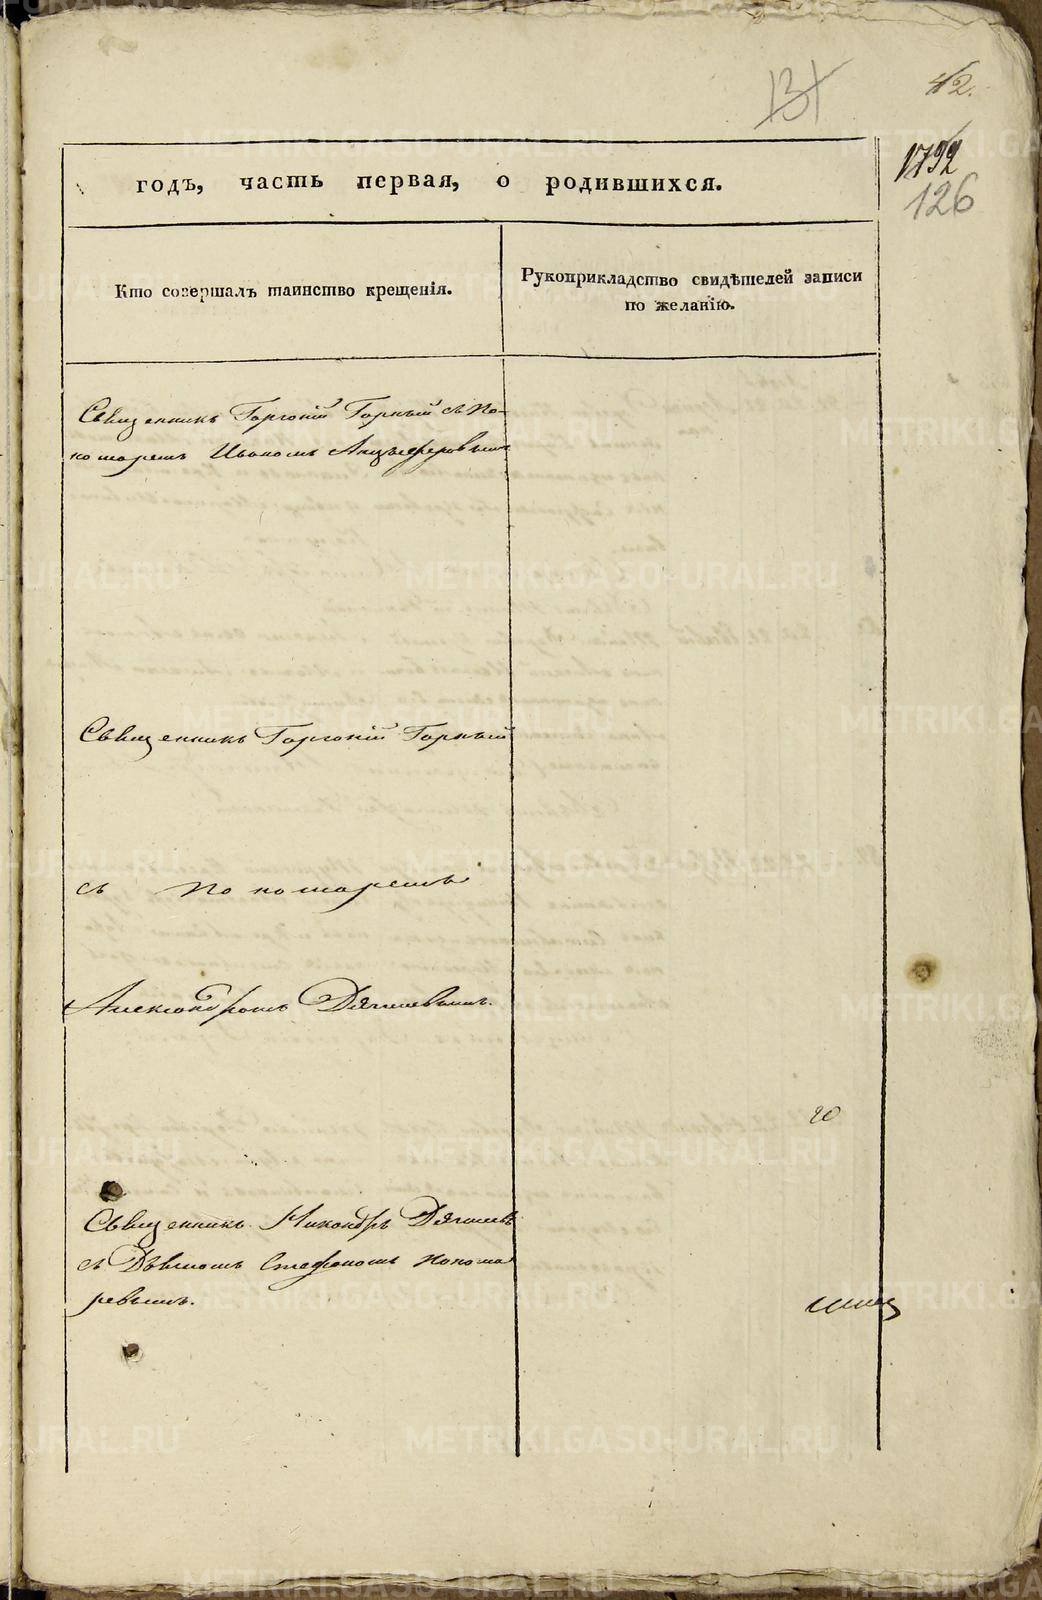 131
42.
1792
126
годъ, часть первая, о родившихся.
Кто совершалъ таинство крещенія.
Рукоприкладство свидѣтелей записи
по желанію.
Священникъ Горгоній Горный съ По-
номаремъ Иваномъ Анцыферовымъ
Священникъ Горгоній Горный
съ пономаремъ
Александромъ Дягилевымъ.
20
Священникъ Никандръ Дягилевъ
съ Дьячкомъ Стефаномъ Понома
ревымъ.
METRIKI.GASO-URAL.RU